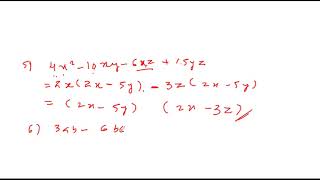 5) 4x² - 10xy - 6xz + 15yz
= 2x(2x - 5y) - 3z(2x - 5y)
= (2x - 5y) (2x - 3z)
6) 3ab - 6b